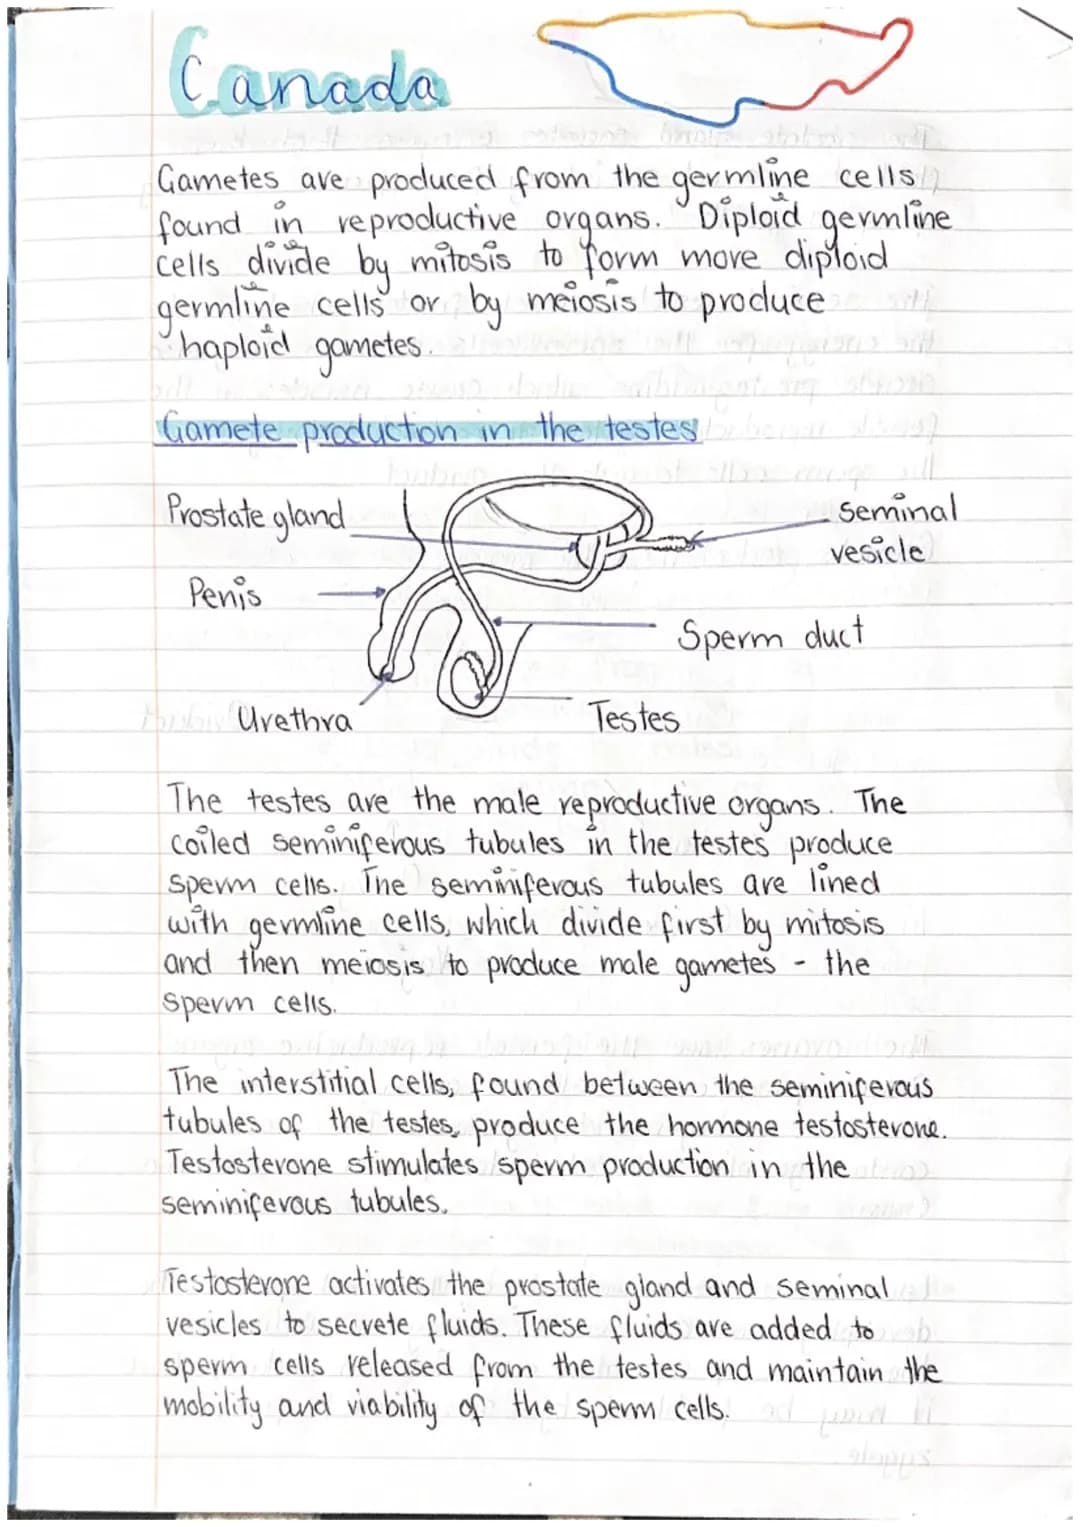 Canada
Gametes are produced from the germline cells
found in reproductive organs. Diploid germline
cells divide by mitosis to form more diploid
germline cells or by meiosis to produce
haploid gametes.
Gamete production in the testes
Prostate gland
Seminal
vesicle
Penis
Sperm duct
Urethra
Testes
The testes are the male reproductive organs. The
coiled seminiferous tubules in the testes produce
sperm cells. The seminiferous tubules are lined
with germline cells, which divide first by mitosis
and then meiosis to produce male gametes - the
sperm cells.
The interstitial cells, found between the seminiferous
tubules of the testes, produce the hormone testosterone.
Testosterone stimulates sperm production in the
seminiferous tubules.
Testosterone activates the prostate gland and seminal
vesicles to secrete fluids. These fluids are added to
sperm cells released from the testes and maintain the
mobility and viability of the sperm cells.